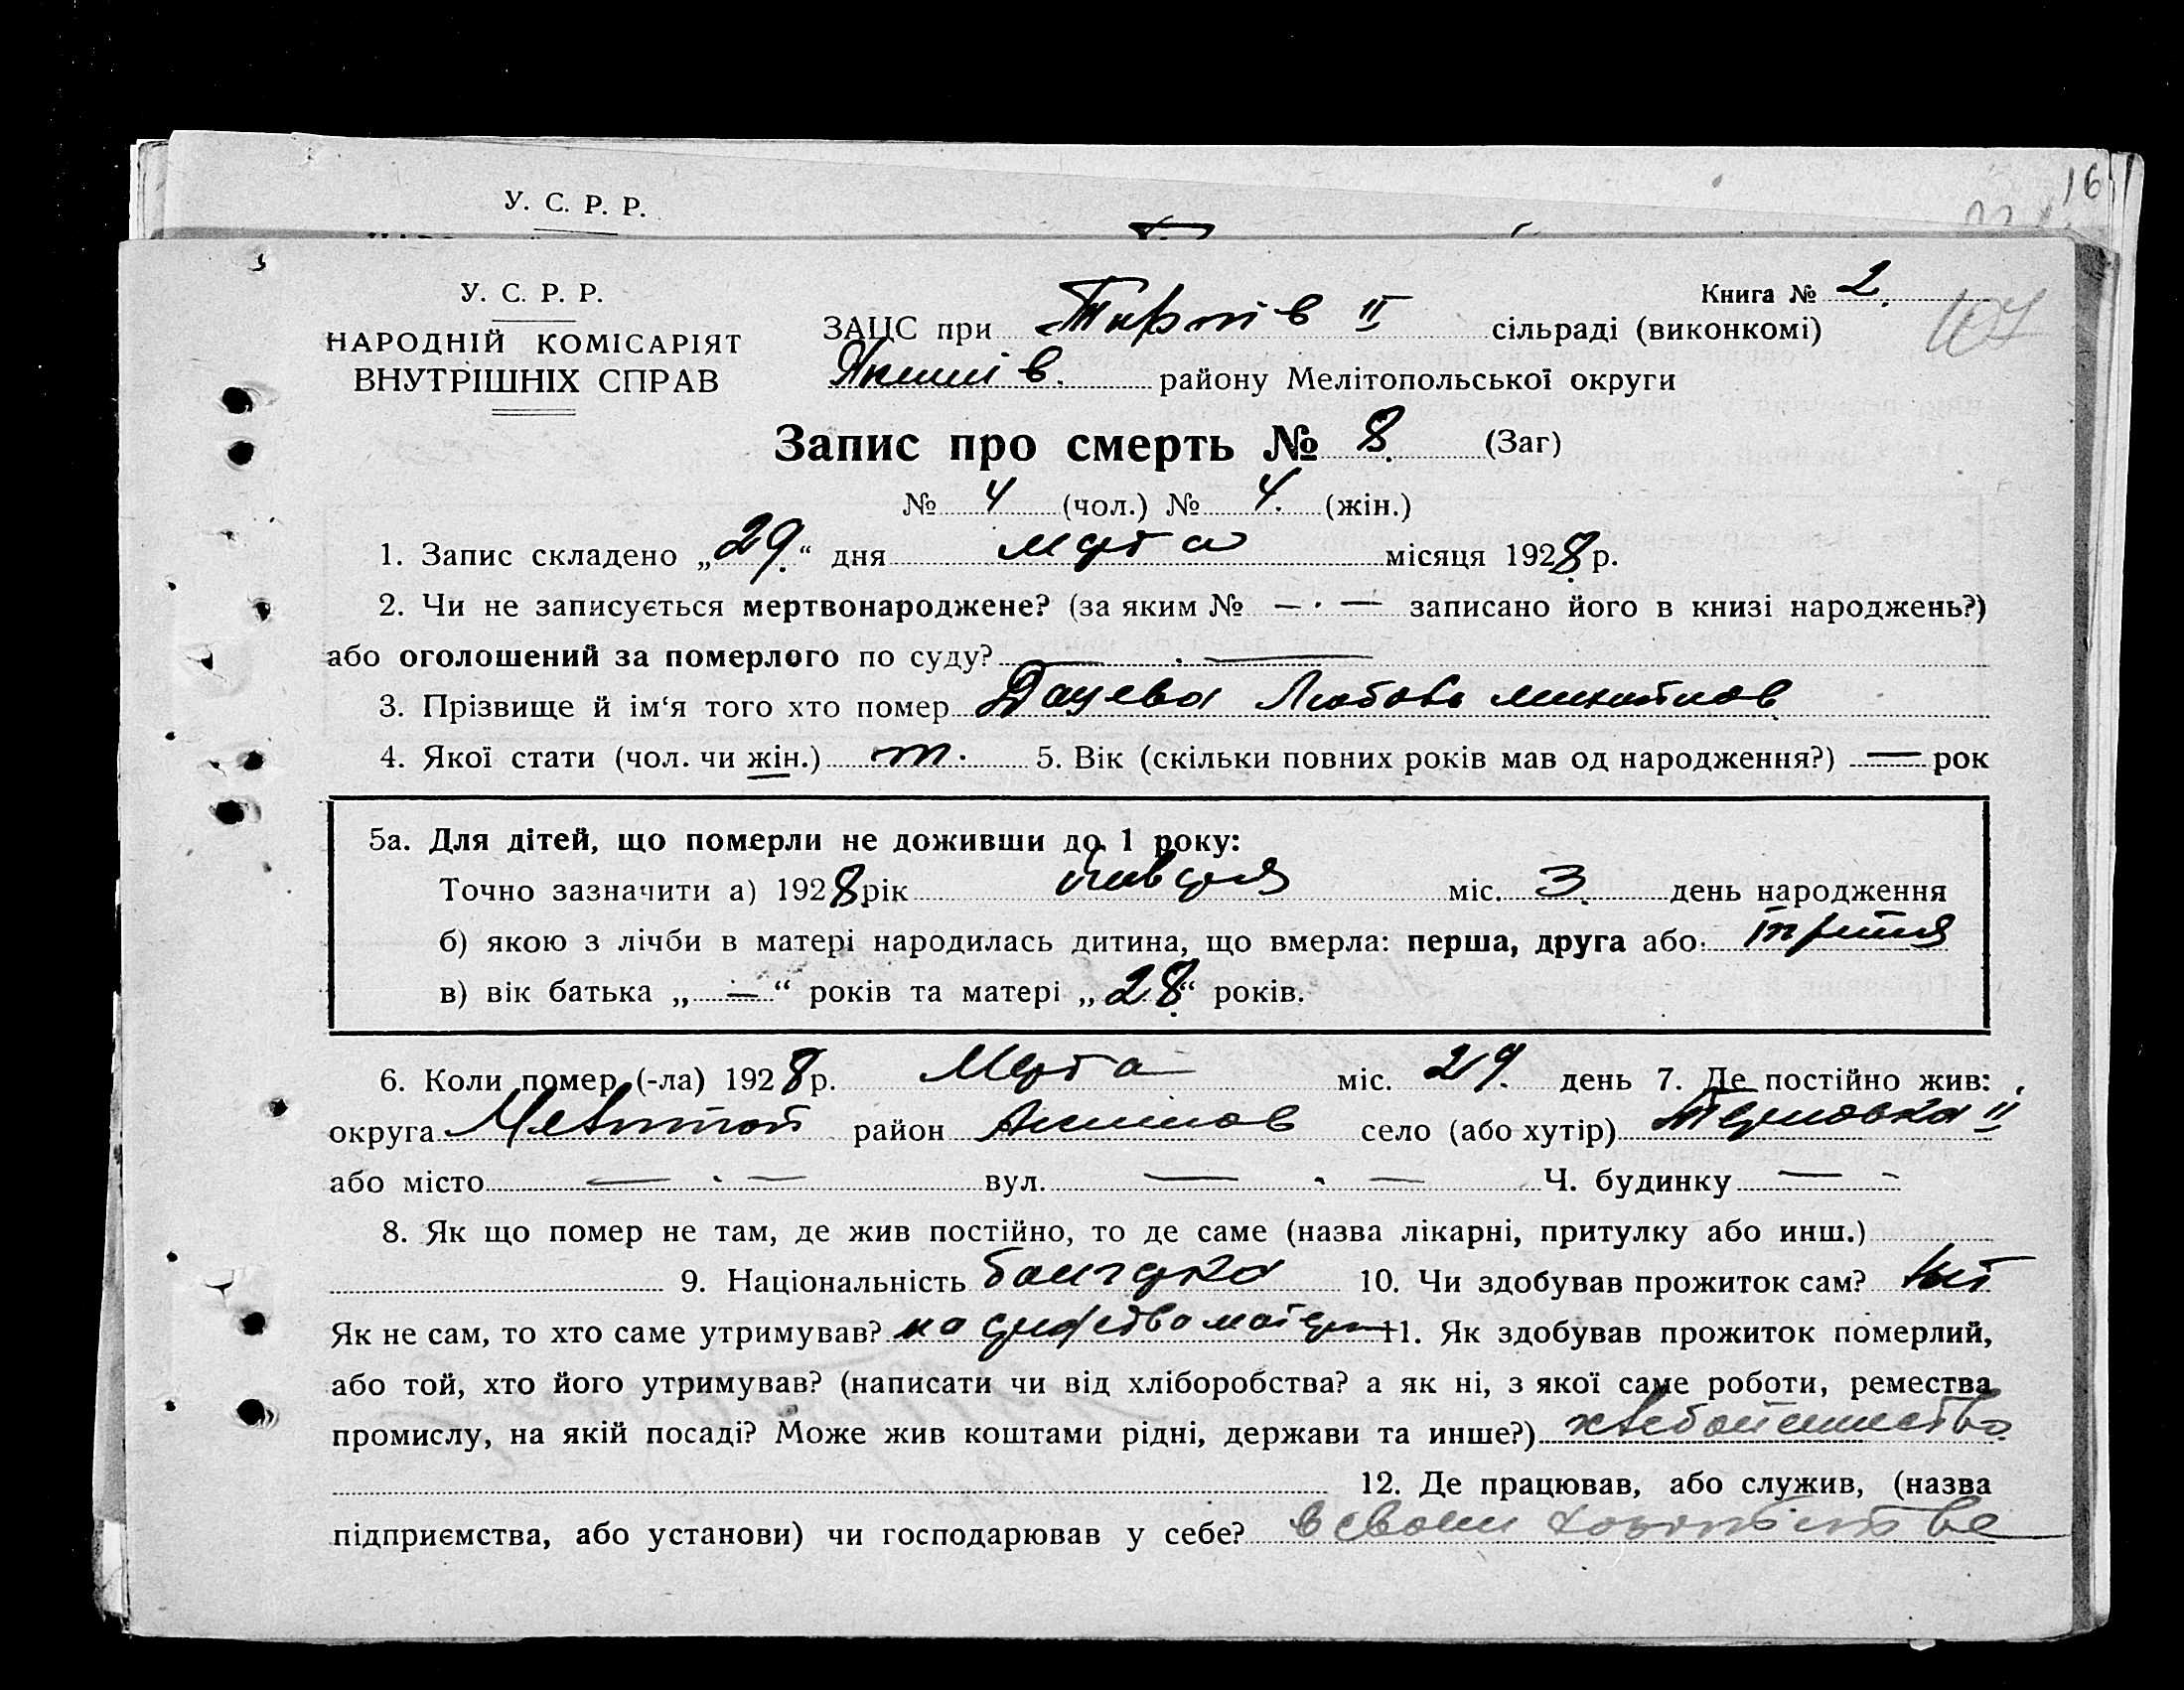 16
У. С. Р. Р.
У. С. Р. Р.
НАРОДНІЙ КОМІСАРІЯТ
ВНУТРІШНІХ СПРАВ
Книга № 2.
107
ЗАЦС при II сільраді (виконкомі)
Якимів. району Мелітопольської округи
Запис про смерть № 8. (Заг)
№ 4 (чол.) № 4. (жін.)
1. Запис складено „29.“ дня марта місяця 1928 р.
2. Чи не записується мертвонароджене? (за яким № — · — записано його в книзі народжень?)
або оголошений за померлого по суду? — . —
3. Прізвище й ім'я того хто помер Любовь Михайлов
4. Якої стати (чол. чи жін.) 5. Вік (скільки повних років мав од народження?) — рок
5а. Для дітей, що померли не доживши до 1 року:
Точно зазначити а) 1928 рік января міс. 3. день народження
б) якою з лічби в матері народилась дитина, що вмерла: перша, друга або: третя
в) вік батька „—“ років та матері „28“ років.
6. Коли помер (-ла) 1928 р. Марта міс. 29. день 7. Де постійно жив:
округа Мелитоп район Акимов село (або хутір) II
або місто — . — вул. — . — Ч. будинку — -
8. Як що помер не там, де жив постійно, то де саме (назва лікарні, притулку або инш.)
9. Національність болгарка 10. Чи здобував прожиток сам? Нет
Як не сам, то хто саме утримував? на средства матери 11. Як здобував прожиток померлий,
або той, хто його утримував? (написати чи від хліборобства? а як ні, з якої саме роботи, ремества
промислу, на якій посаді? Може жив коштами рідні, держави та инше?) хлебопашество
12. Де працював, або служив, (назва
підприємства, або установи) чи господарював у себе? в своем